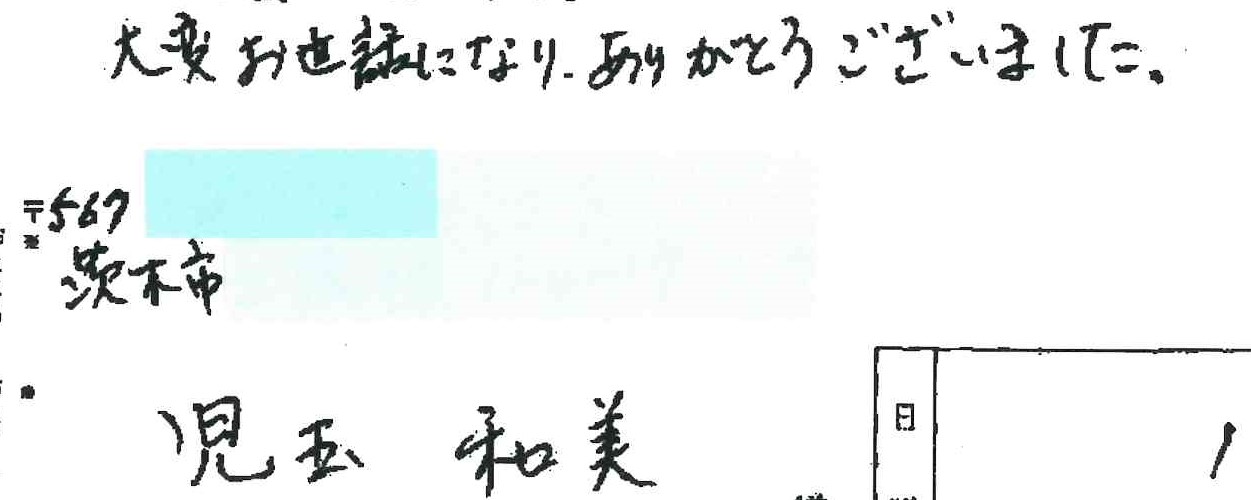 大変お世話になり、ありがとうございました。
〒567
茨木市
児玉 和美
日